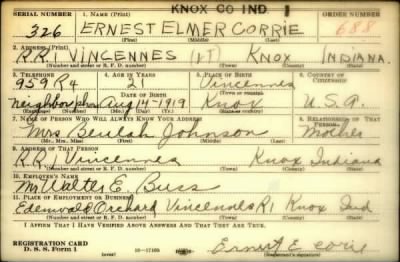 KNOX CO IND. 1
SERIAL NUMBER 1. NAME (Print) ORDER NUMBER
326 ERNEST ELMER CORRIE 688
(First) (Middle) (Last)
2. ADDRESS (Print)
R.R.1 VINCENNES (VT) KNOX INDIANA.
(Number and street or R. F. D. number) (Town) (County) (State)
3. TELEPHONE 4. AGE IN YEARS 5. PLACE OF BIRTH 6. COUNTRY OF CITIZENSHIP
959 R4 21 Vincennes
DATE OF BIRTH (Town or county)
Neighbor phone Aug 14-1919 Knox U.S.A.
7. NAME OF PERSON WHO WILL ALWAYS KNOW YOUR ADDRESS 8. RELATIONSHIP OF THAT PERSON
Mrs Beulah Johnson Mother
(Mr., Mrs., Miss) (First) (Middle) (Last)
9. ADDRESS OF THAT PERSON
R.R.1 Vincennes Knox Indiana
(Number and street or R. F. D. number) (Town) (County) (State)
10. EMPLOYER'S NAME
Mr Walter E. Buss
11. PLACE OF EMPLOYMENT OR BUSINESS
Edenwald Orchard Vincennes R1 Knox Ind
(Number and street or R. F. D. number) (Town) (County) (State)
I AFFIRM THAT I HAVE VERIFIED ABOVE ANSWERS AND THAT THEY ARE TRUE.
REGISTRATION CARD
D. S. S. Form 1 16-17105 Ernest E corrie